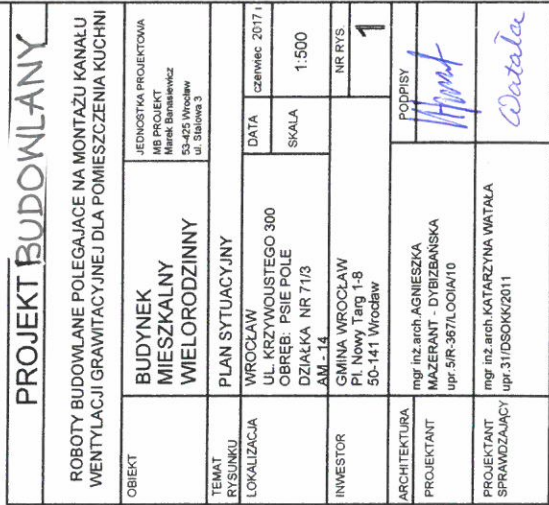 PROJEKT BUDOWLANY
ROBOTY BUDOWLANE POLEGAJACE NA MONTAŻU KANAŁU
WENTYLACJI GRAWITACYJNEJ DLA POMIESZCZENIA KUCHNI
OBIEKT
BUDYNEK
MIESZKALNY
WIELORODZINNY
JEDNOSTKA PROJEKTOWA
MB PROJEKT
Marek Banasiewicz
53-425 Wrocław
ul. Stalowa 3
TEMAT
RYSUNKU
PLAN SYTUACYJNY
DATA
czerwiec 2017 r
LOKALIZACJA
WROCŁAW
UL. KRZYWOUSTEGO 300
OBRĘB: PSIE POLE
DZIAŁKA NR 71/3
AM - 14
SKALA
1:500
INWESTOR
GMINA WROCŁAW
Pl. Nowy Targ 1-8
50-141 Wrocław
NR RYS.
1
ARCHITEKTURA
PODPISY
PROJEKTANT
mgr inż.arch.AGNIESZKA
MAZERANT - DYBIZBAŃSKA
upr.5/R-367/ŁOOIA/10
PROJEKTANT
SPRAWDZAJĄCY
mgr inż.arch.KATARZYNA WATAŁA
upr.31/DSOKK/2011
Watała